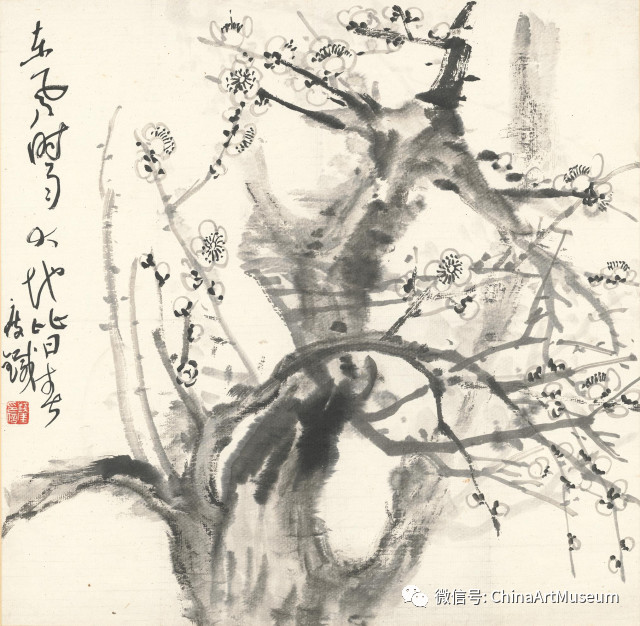 东风时雨大地皆春
瘦铁
微信号: ChinaArtMuseum